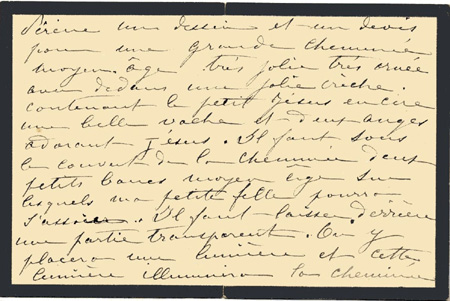 Périne un dessin et un devis
pour une grande cheminée
moyen âge très jolie très ornée
avec dedans une jolie crèche.
contenant le petit Jésus en cire
une belle vache et deux anges
adorant Jésus. Il faut sous
le couvert de la cheminée deux
petits bancs moyen âge sur
lesquels ma petite fille pourra
s'asseoir. Il faut laisser derrière
une partie transparent. On y
placera une lumière et cette
lumière illuminera la cheminée